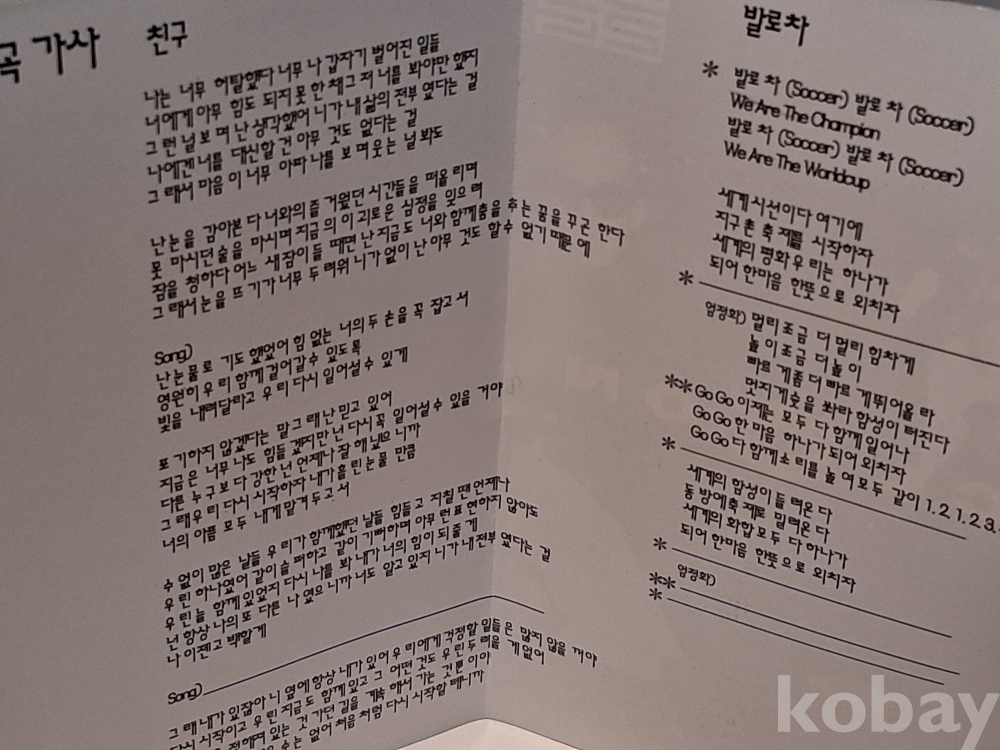 곡 가사
친구
나는 너무 허탈했다 너무나 갑자기 벌어진 일들
너에게 아무 힘도 되지 못한 채 그저 너를 봐야만 했지
그런 널 보며 난 생각했어 니가 내 삶의 전부였다는 걸
나에겐 너를 대신할 건 아무 것도 없다는 걸
그래서 마음이 너무 아파 나를 보며 웃는 널 봐도
난 눈을 감아본다 너와의 즐거웠던 시간들을 떠올리며
못 마시던 술을 마시며 지금의 이 괴로운 심정을 잊으려
잠을 청하다 어느새 잠이 들 때면 난 지금도 너와 함께 춤을 추는 꿈을 꾸곤 한다
그래서 눈을 뜨기가 너무 두려워 니가 없이 난 아무 것도 할 수 없기 때문에
Song)
난 눈물로 기도했었어 힘 없는 너의 두 손을 꼭 잡고서
영원히 우리 함께 걸어갈 수 있도록
빛을 내려달라고 우리 다시 일어설 수 있게
포기하지 않겠다는 말 그래 난 믿고 있어
지금은 너무나도 힘들겠지만 넌 다시 꼭 일어설 수 있을 거야
다른 누구보다 강한 넌 언제나 잘 해냈으니까
그래 우리 다시 시작하자 내가 흘린 눈물 만큼
너의 아픔 모두 내게 맡겨두고서
수없이 많은 날들 우리가 함께했던 날들 힘들고 지칠 땐 언제나
우린 하나였어 같이 슬퍼하고 같이 기뻐하며 아무런 표현하지 않아도
우린 늘 함께 있었지 다시 나를 봐 내가 너의 힘이 되줄게
넌 항상 나의 또 다른 나였으니까 너도 알고 있지 니가 내 전부였다는 걸
나 이젠 고백할게
Song)
그래 내가 있잖아 니 옆에 항상 내가 있어 우리에게 걱정할 일들은 많지 않을 꺼야
다시 시작이고 우린 지금도 함께 있고 그 어떤 것도 우린 두려울 게 없어
정해져 있는 것 가던 길을 계속 해서 가는 것뿐이야
수는 없어 처음처럼 다시 시작할 테니까
발로차
* 발로 차 (Soccer) 발로 차 (Soccer)
We Are The Champion
발로 차 (Soccer) 발로 차 (Soccer)
We Are The Worldcup
세계 시선이다 여기에
지구촌 축제를 시작하자
세계의 평화 우리는 하나가
되어 한마음 한뜻으로 외치자
*
엄정화) 멀리 조금 더 멀리 힘차게
높이 조금 더 높이
빠르게 좀 더 빠르게 뛰어올라
멋지게 슛을 쏴라 함성이 터진다
** Go Go 이제는 모두 다 함께 일어나
Go Go 한마음 하나가 되어 외치자
Go Go 다 함께 소리를 높여 모두 같이 1. 2 1. 2 3.
*
세계의 함성이 들려온다
동방에 축제로 밀려온다
세계의 화합 모두 다 하나가
되어 한마음 한뜻으로 외치자
*
엄정화)
**
*
kobay